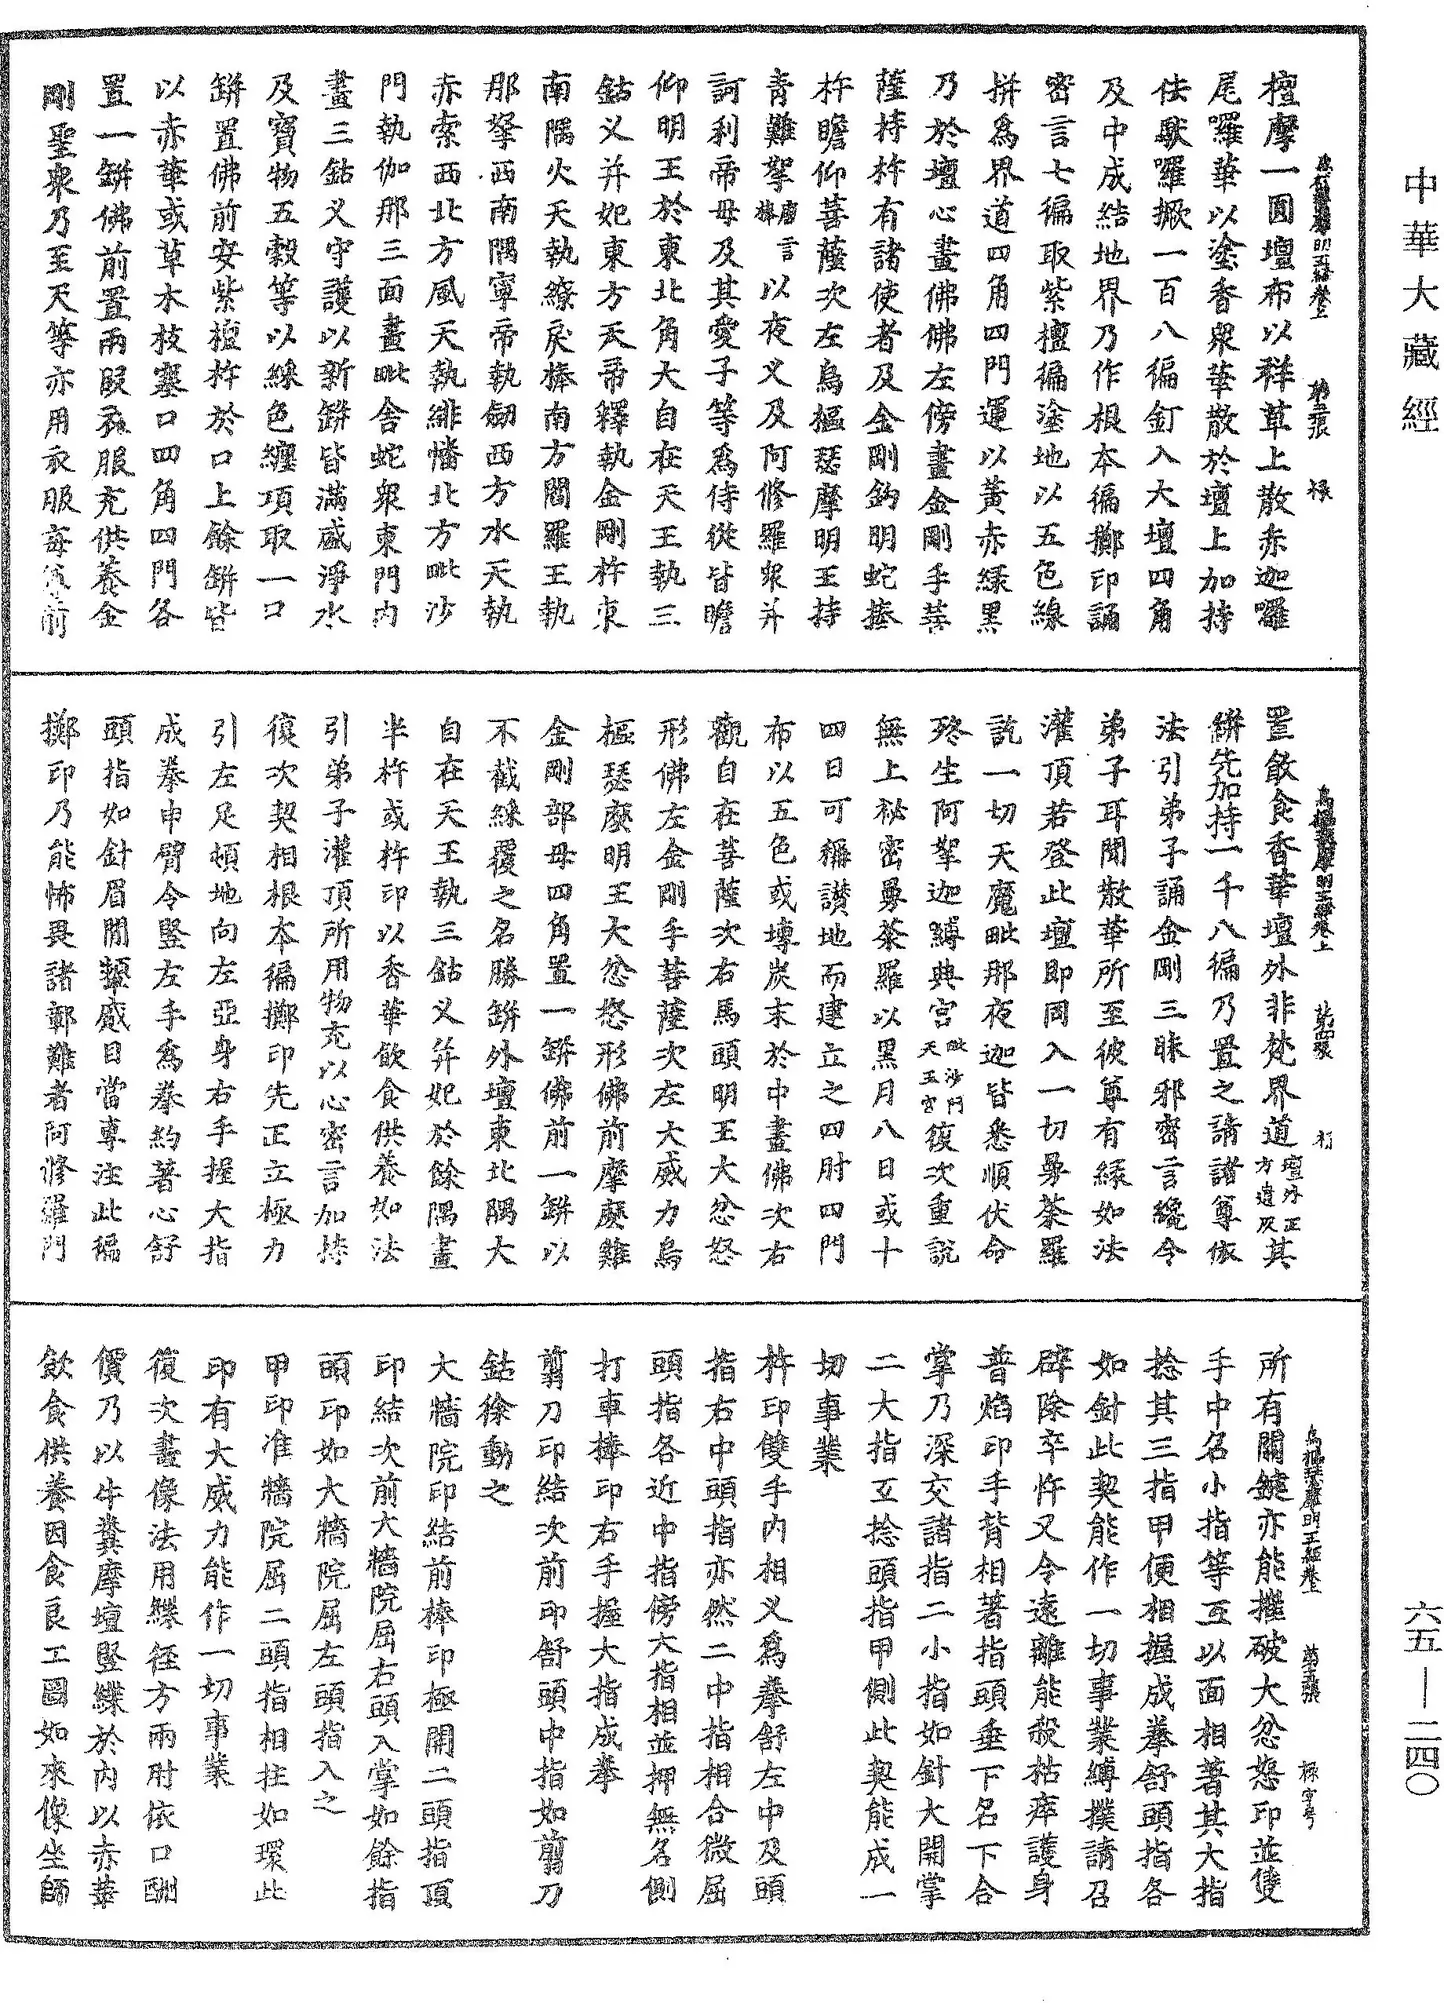 中華大藏經
檀摩一圓壇布以群草上散赤迦囉
尾囉華以塗香衆華散於壇上加持
佉馱羅撅一百八徧釘入大壇四角
及中成結地界乃作根本徧擲印誦
密言七徧取紫檀徧塗地以五色線
拼爲界道四角四門運以黃赤綠黑
乃於壇心畫佛佛左傍畫金剛手菩
薩持杵有諸使者及金剛鈎明蛇捧
杵瞻仰菩薩次左烏樞瑟摩明王持
青難拏唐言棒以夜义及阿修羅衆并
訶利帝母及其愛子等爲侍從皆瞻
仰明王於東北角大自在天王執三
鈷义并妃東方天帝釋執金剛杵東
南隅火天執繚戾棒南方閻羅王執
那拏西南隅寧帝執劒西方水天執
赤索西北方風天執緋幡北方毗沙
門執伽那三面畫毗舍蛇衆東門内
畫三鈷义守護以新缾皆滿盛淨水
及寶物五穀等以綵色纏項取一口
缾置佛前安紫檀杵於口上餘缾皆
以赤華或草木枝塞口四角四門各
置一缾佛前置兩服衣服充供養金
剛聖衆乃至天等亦用衣服每位前
烏樞瑟摩明王經卷上 第四張
置飲食香華壇外非梵界道壇外正方遺及其
缾先加持一千八徧乃置之請諸尊依
法引弟子誦金剛三昧邪密言纔令
弟子耳聞散華所至彼尊有緣如法
灌頂若登此壇即同入一切曼荼羅
說一切天魔毗那夜迦皆悉順伏命
終生阿拏迦縛典宮毗沙門天王宮復次重說
無上祕密曼荼羅以黑月八日或十
四日可稱讚地而建立之四肘四門
布以五色或塼炭末於中畫佛次右
觀自在菩薩次右馬頭明王大忿怒
形佛左金剛手菩薩次左大威力烏
樞瑟麼明王大忿怒形佛前摩麼雞
金剛部母四角置一缾佛前一缾以
不截綵覆之名勝缾外壇東北隅大
自在天王執三鈷义并妃於餘隅畫
半杵或杵印以香華飲食供養如法
引弟子灌頂所用物充以心密言加持
復次契相根本徧擲印先正立極力
引左足頓地向左亞身右手握大指
成拳申臂令竪左手爲拳約著心舒
頭指如針眉間顰蹙目當專注此徧
擲印乃能怖畏諸鄣難者阿修羅門
烏樞瑟摩明王經卷上 第五張
所有關鍵亦能摧破大忿怒印並雙
手中名小指等互以面相著其大指
捻其三指甲便相握成拳舒頭指各
如針此契能作一切事業縛撲請召
辟除卒忤又令遠離能殺枯瘁護身
普焰印手背相著指頭垂下名下合
掌乃深交諸指二小指如針大開掌
二大指互捻頭指甲側此契能成一
切事業
杵印雙手内相义爲拳舒左中及頭
指右中頭指亦然二中指相合微屈
頭指各近中指傍大指相並押無名側
打車棒印右手握大指成拳
剪刀印結次前印舒頭中指如剪刀
鈷徐動之
大牆院印結前棒印極開二頭指頂
印結次前大牆院屈右頭入掌如餘指
頭印如大牆院屈左頭指入之
甲印准牆院屈二頭指相拄如環此
印有大威力能作一切事業
復次畫像法用緤徑方兩肘依口酬
價乃以牛糞摩壇竪緤於内以赤華
飲食供養因食良工圖如來像坐師
六五—二四〇